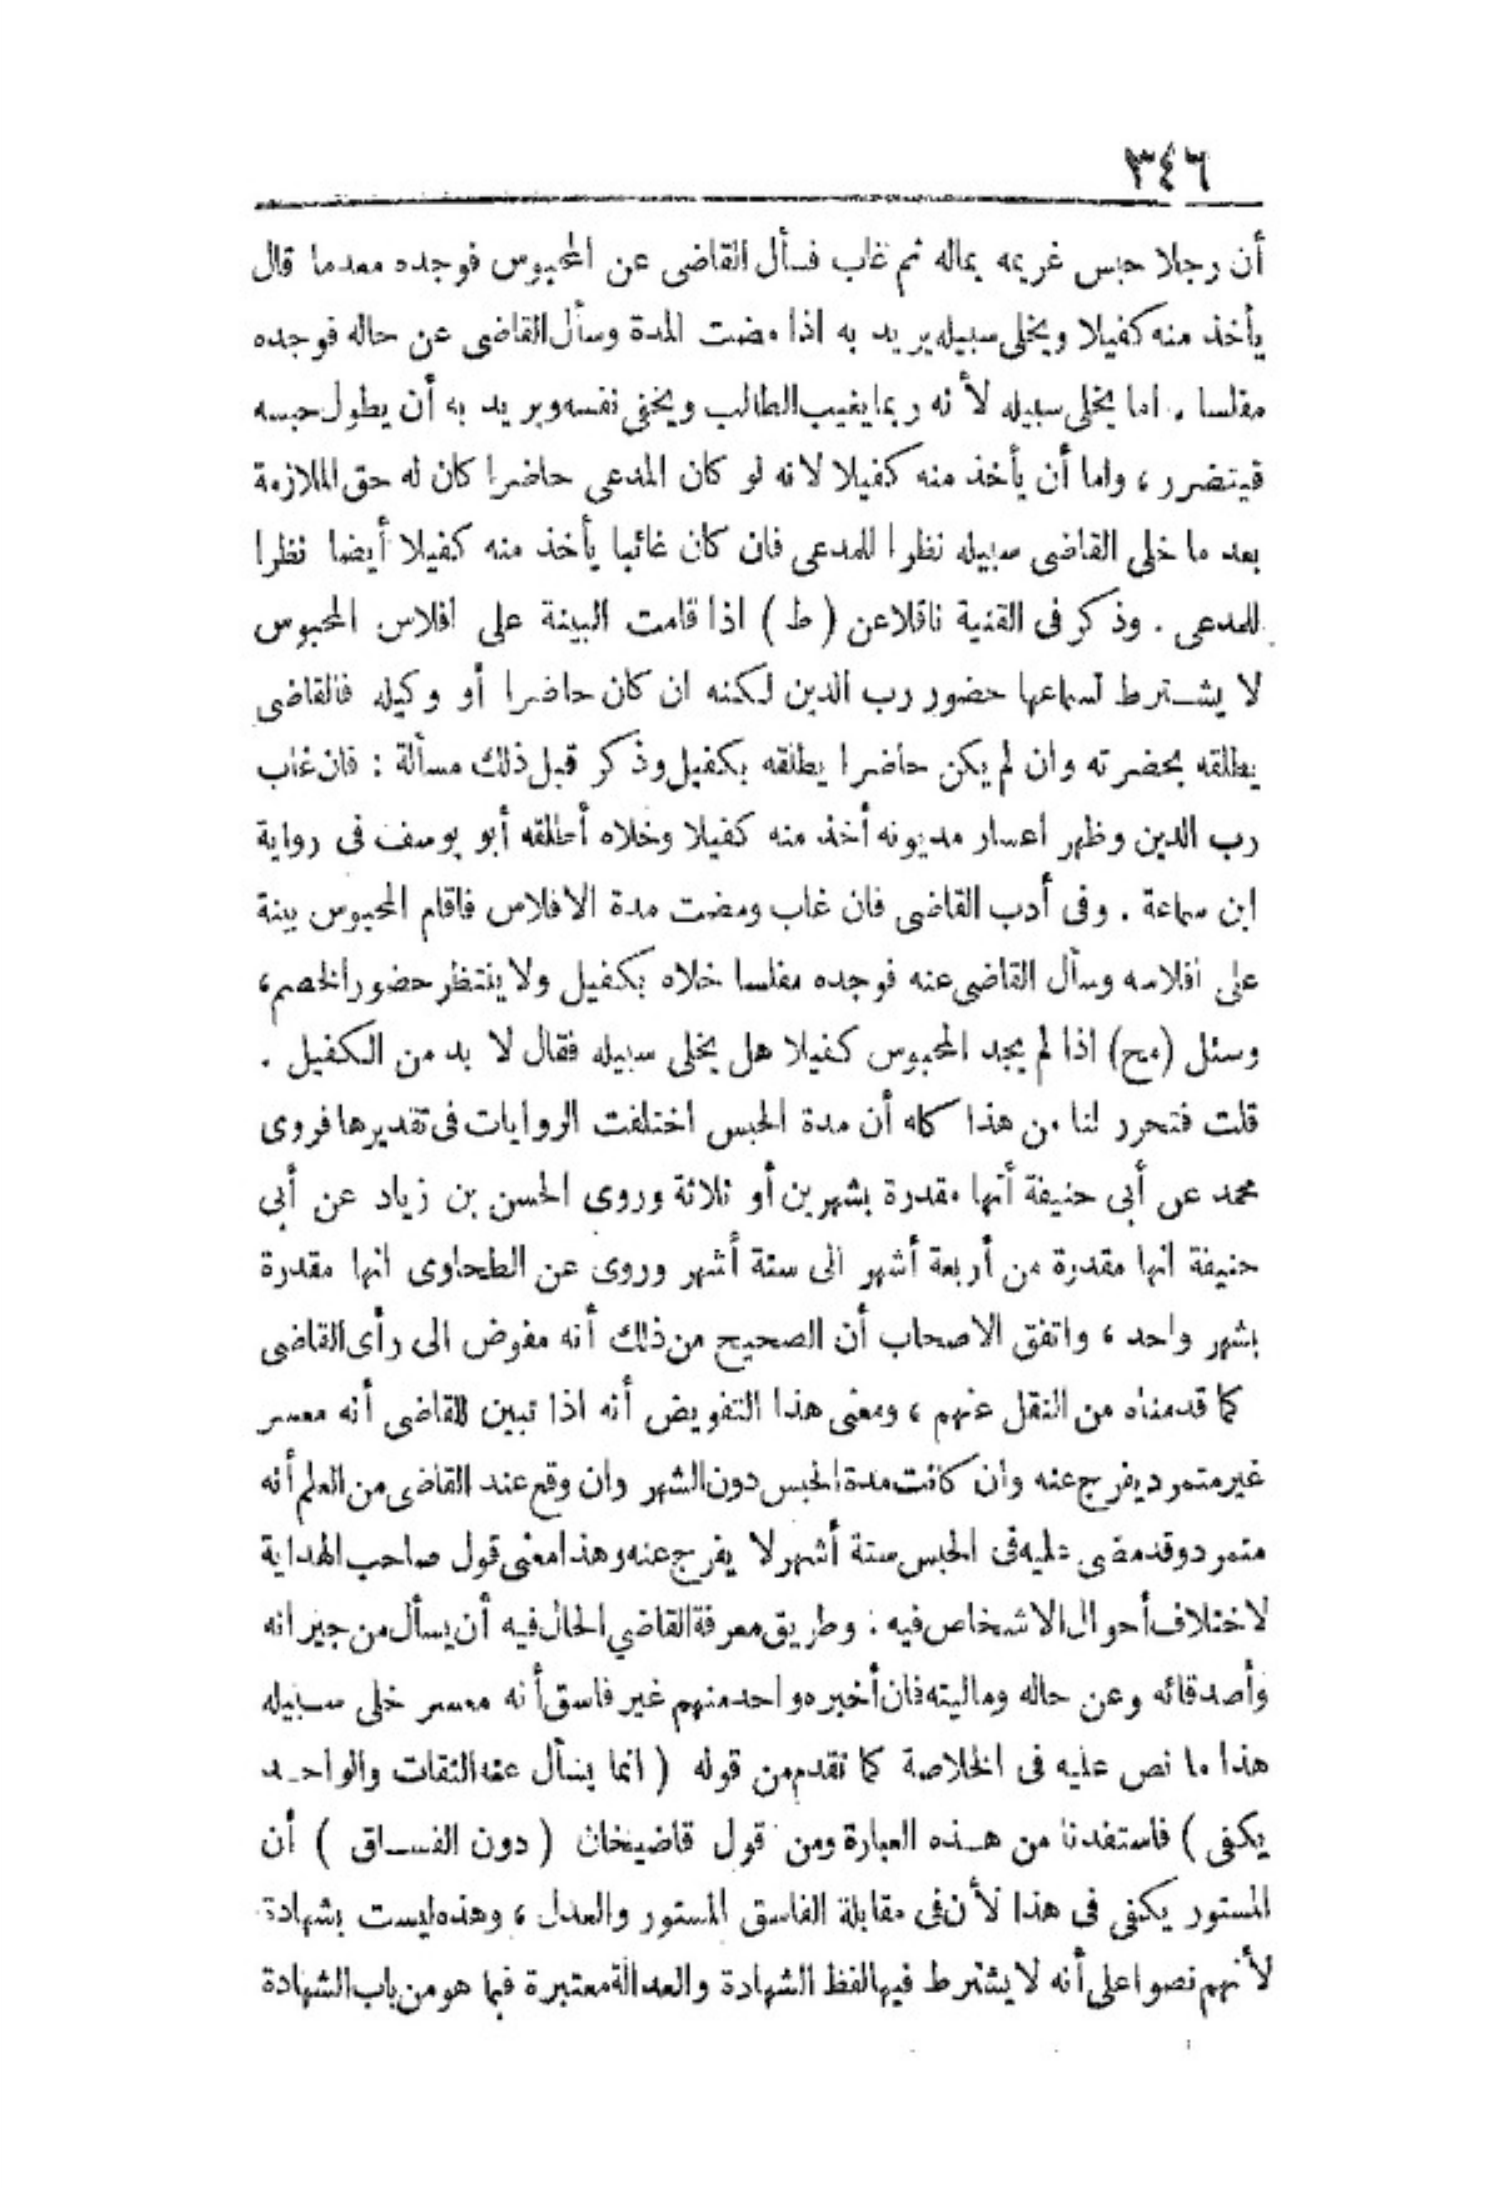 ٣٤٦
أن رجلا حبس غريمه بماله ثم غاب فسأل القاضى عن المحبوس فوجده معدما قال
يأخذ منه كفيلا ويخلى سبيله يريد به اذا مضت المدة وسأل القاضى عن حاله فوجده
مفلسا . اما يخلى سبيله لأنه ربما يغيب الطالب ويخفى نفسه ويريد به أن يطول حبسه
فيتضرر ، واما أن يأخذ منه كفيلا لانه لو كان المدعى حاضرا كان له حق الملازمة
بعد ما خلى القاضى سبيله نظرا للمدعى فان كان غائبا يأخذ منه كفيلا أيضا نظرا
للمدعى . وذكر فى القنية ناقلا عن ( ط ) اذا قامت البينة على افلاس المحبوس
لا يشترط لسماعها حضور رب الدين لكنه ان كان حاضرا أو وكيله فالقاضى
يطلقه بحضرته وان لم يكن حاضرا يطلقه بكفيل وذكر قبل ذلك مسألة : فان غاب
رب الدين وظهر اعسار مديونه أخذ منه كفيلا وخلاه أطلقه أبو يوسف فى رواية
ابن سماعة . وفى أدب القاضى فان غاب ومضت مدة الافلاس فاقام المحبوس بينة
على افلاسه وسأل القاضى عنه فوجده مفلسا خلاه بكفيل ولا ينتظر حضور الخصم ،
وسئل (مح) اذا لم يجد المحبوس كفيلا هل يخلى سبيله فقال لا بد من الكفيل .
قلت فتحرر لنا من هذا كله أن مدة الحبس اختلفت الروايات فى تقديرها فروى
محمد عن أبى حنيفة أنها مقدرة بشهرين أو ثلاثة وروى الحسن بن زياد عن أبى
حنيفة انها مقدرة من أربعة أشهر الى ستة أشهر وروى عن الطحاوى انها مقدرة
بشهر واحد ، واتفق الاصحاب أن الصحيح من ذلك أنه مفوض الى رأى القاضى
كما قدمناه من النقل عنهم ، ومعنى هذا التفويض أنه اذا تبين للقاضى أنه معسر
غير متمرد يفرج عنه وان كانت مدة الحبس دون الشهر وان وقع عند القاضى من العلم أنه
متمرد وقد مضى عليه فى الحبس ستة أشهر لا يفرج عنه وهذا معنى قول صاحب الهداية
لاختلاف أحوال الاشخاص فيه : وطريق معرفة القاضي الحال فيه أن يسأل من جيرانه
وأصدقائه وعن حاله وماليته فان أخبره واحد منهم غير فاسق أنه معسر خلى سبيله
هذا ما نص عليه فى الخلاصة كما تقدم من قوله ( انما يسأل عنه الثقات والواحد
يكفى ) فاستفدنا من هذه العبارة ومن قول قاضيخان ( دون الفساق ) أن
المستور يكفى فى هذا لأن فى مقابلة الفاسق المستور والعدل ، وهذه ليست بشهادة
لأنهم نصوا على أنه لا يشترط فيها لفظ الشهادة والعدالة معتبرة فيما هو من باب الشهادة